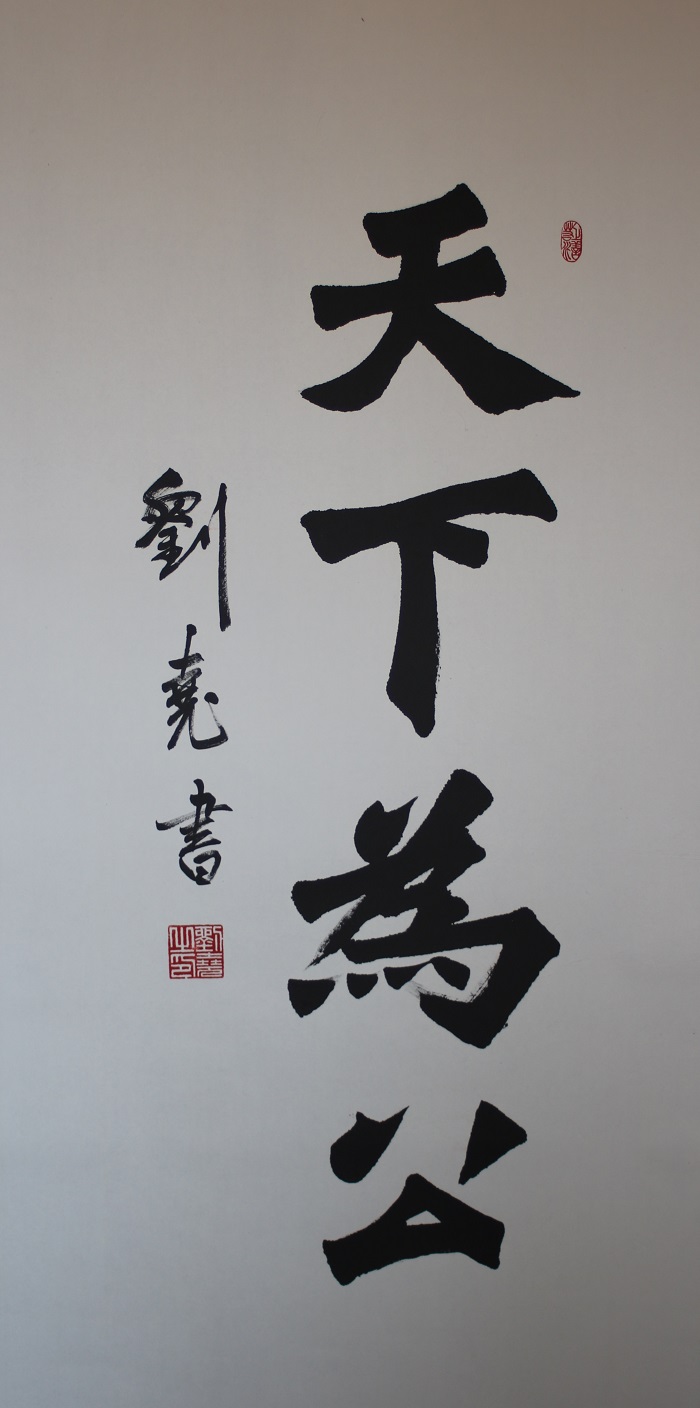 天下為公
劉堯書